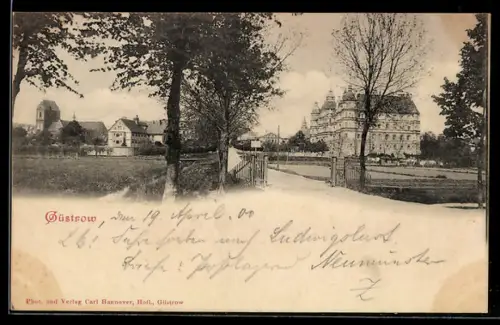 Güstrow, den 19 April. 00
nach Ludwigslust,
Briefe: Postlagernd Neumünster
Z
Phot. und Verlag Carl Hannover, Hofl., Güstrow